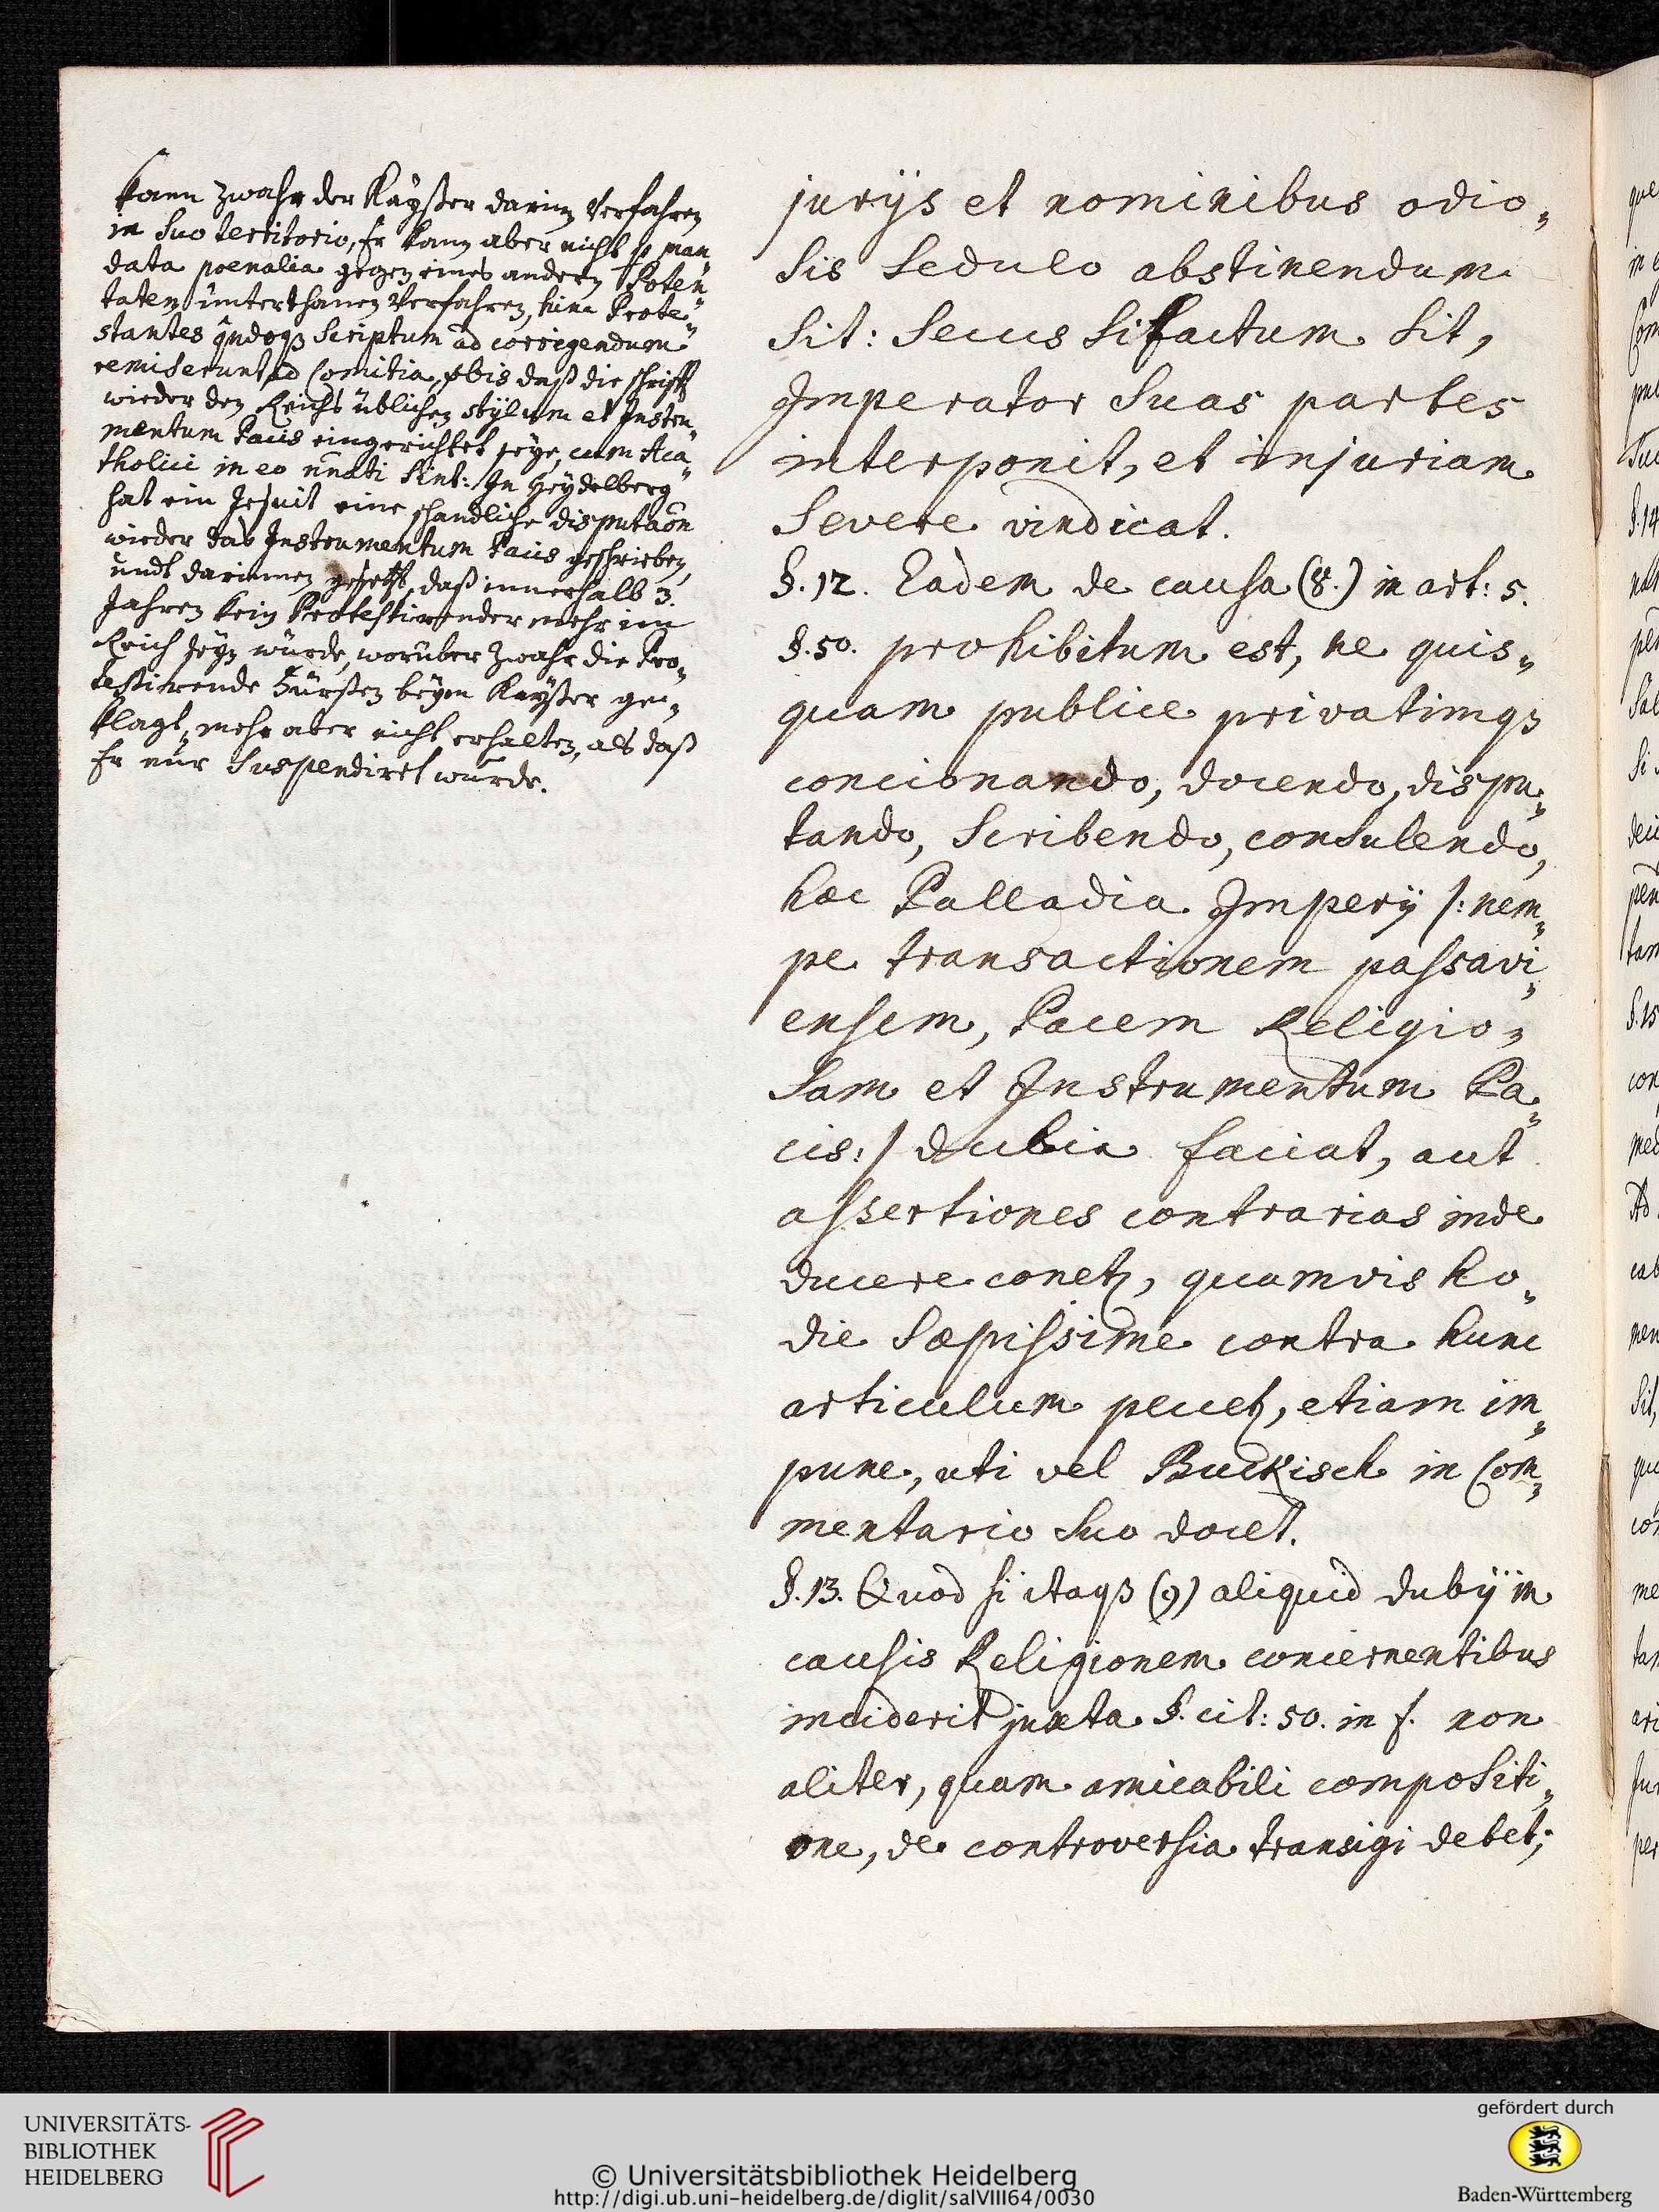 kann zwahr der Kayßer darin Verfahren
in suo territorio, Er kann aber nicht p man„
data poenalia gegen eines andern Poten„
taten unterthanen Verfahren, hinc Prote„
stantes scriptum ad corrigendum
remiserunt ad Comitia, bis daß die schrifft
wieder den Reichs üblichen stylum et Instru„
mentum Pacis eingerichtet seye, cum Aca„
tholici in eo sint: In Heydelberg
hat ein Jesuit eine schandliche disputaõn
wieder das Instrumentum Pacis geschrieben,
undt darinnen gesetzt, daß innerhalb 3.
Jahren kein Protestirender mehr im
Reich seyn würde, worüber zwahr die Pro„
testirende Fürsten beym Kayßer ge„
klagt, mehr aber nicht erhalten, als daß
Er nur suspendiret wurde.
jurijs et nominibus odio„
sis sedulo abstinendum
sit: secus si factum sit,
Imperator suas partes
interponit, et injuriam
severe vindicat.
§. 12. Eadem de causa (8.) in art: 5.
§. 50. prohibitum est, ne quis„
quam publice privatimqꝫ
concionando, docendo, dispu„
tando, scribendo, consulendo,
hæc Palladia Imperij /: nem„
pe transactionem passavi„
ensem, Pacem Religio„
sam et Instrumentum Pa„
cis :/ dubia faciat, aut
assertiones contrarias inde
ducere conetꝫ, quamvis ho„
die sæpissime contra hunc
articulum peccetꝫ, etiam im„
pune, uti vel Buckisch in Com„
mentario suo docet.
§. 13. Quod si itaqꝫ (9) aliquid dubij in
causis Religionem concernentibus
inciderit juxta §. cit: 50. in f. non
aliter, quam amicabili compositi„
one, de controversia transigi debet;
UNIVERSITÄTS-
BIBLIOTHEK
HEIDELBERG
© Universitätsbibliothek Heidelberg
http://digi.ub.uni-heidelberg.de/diglit/salVIII64/0030
gefördert durch
Baden-Württemberg